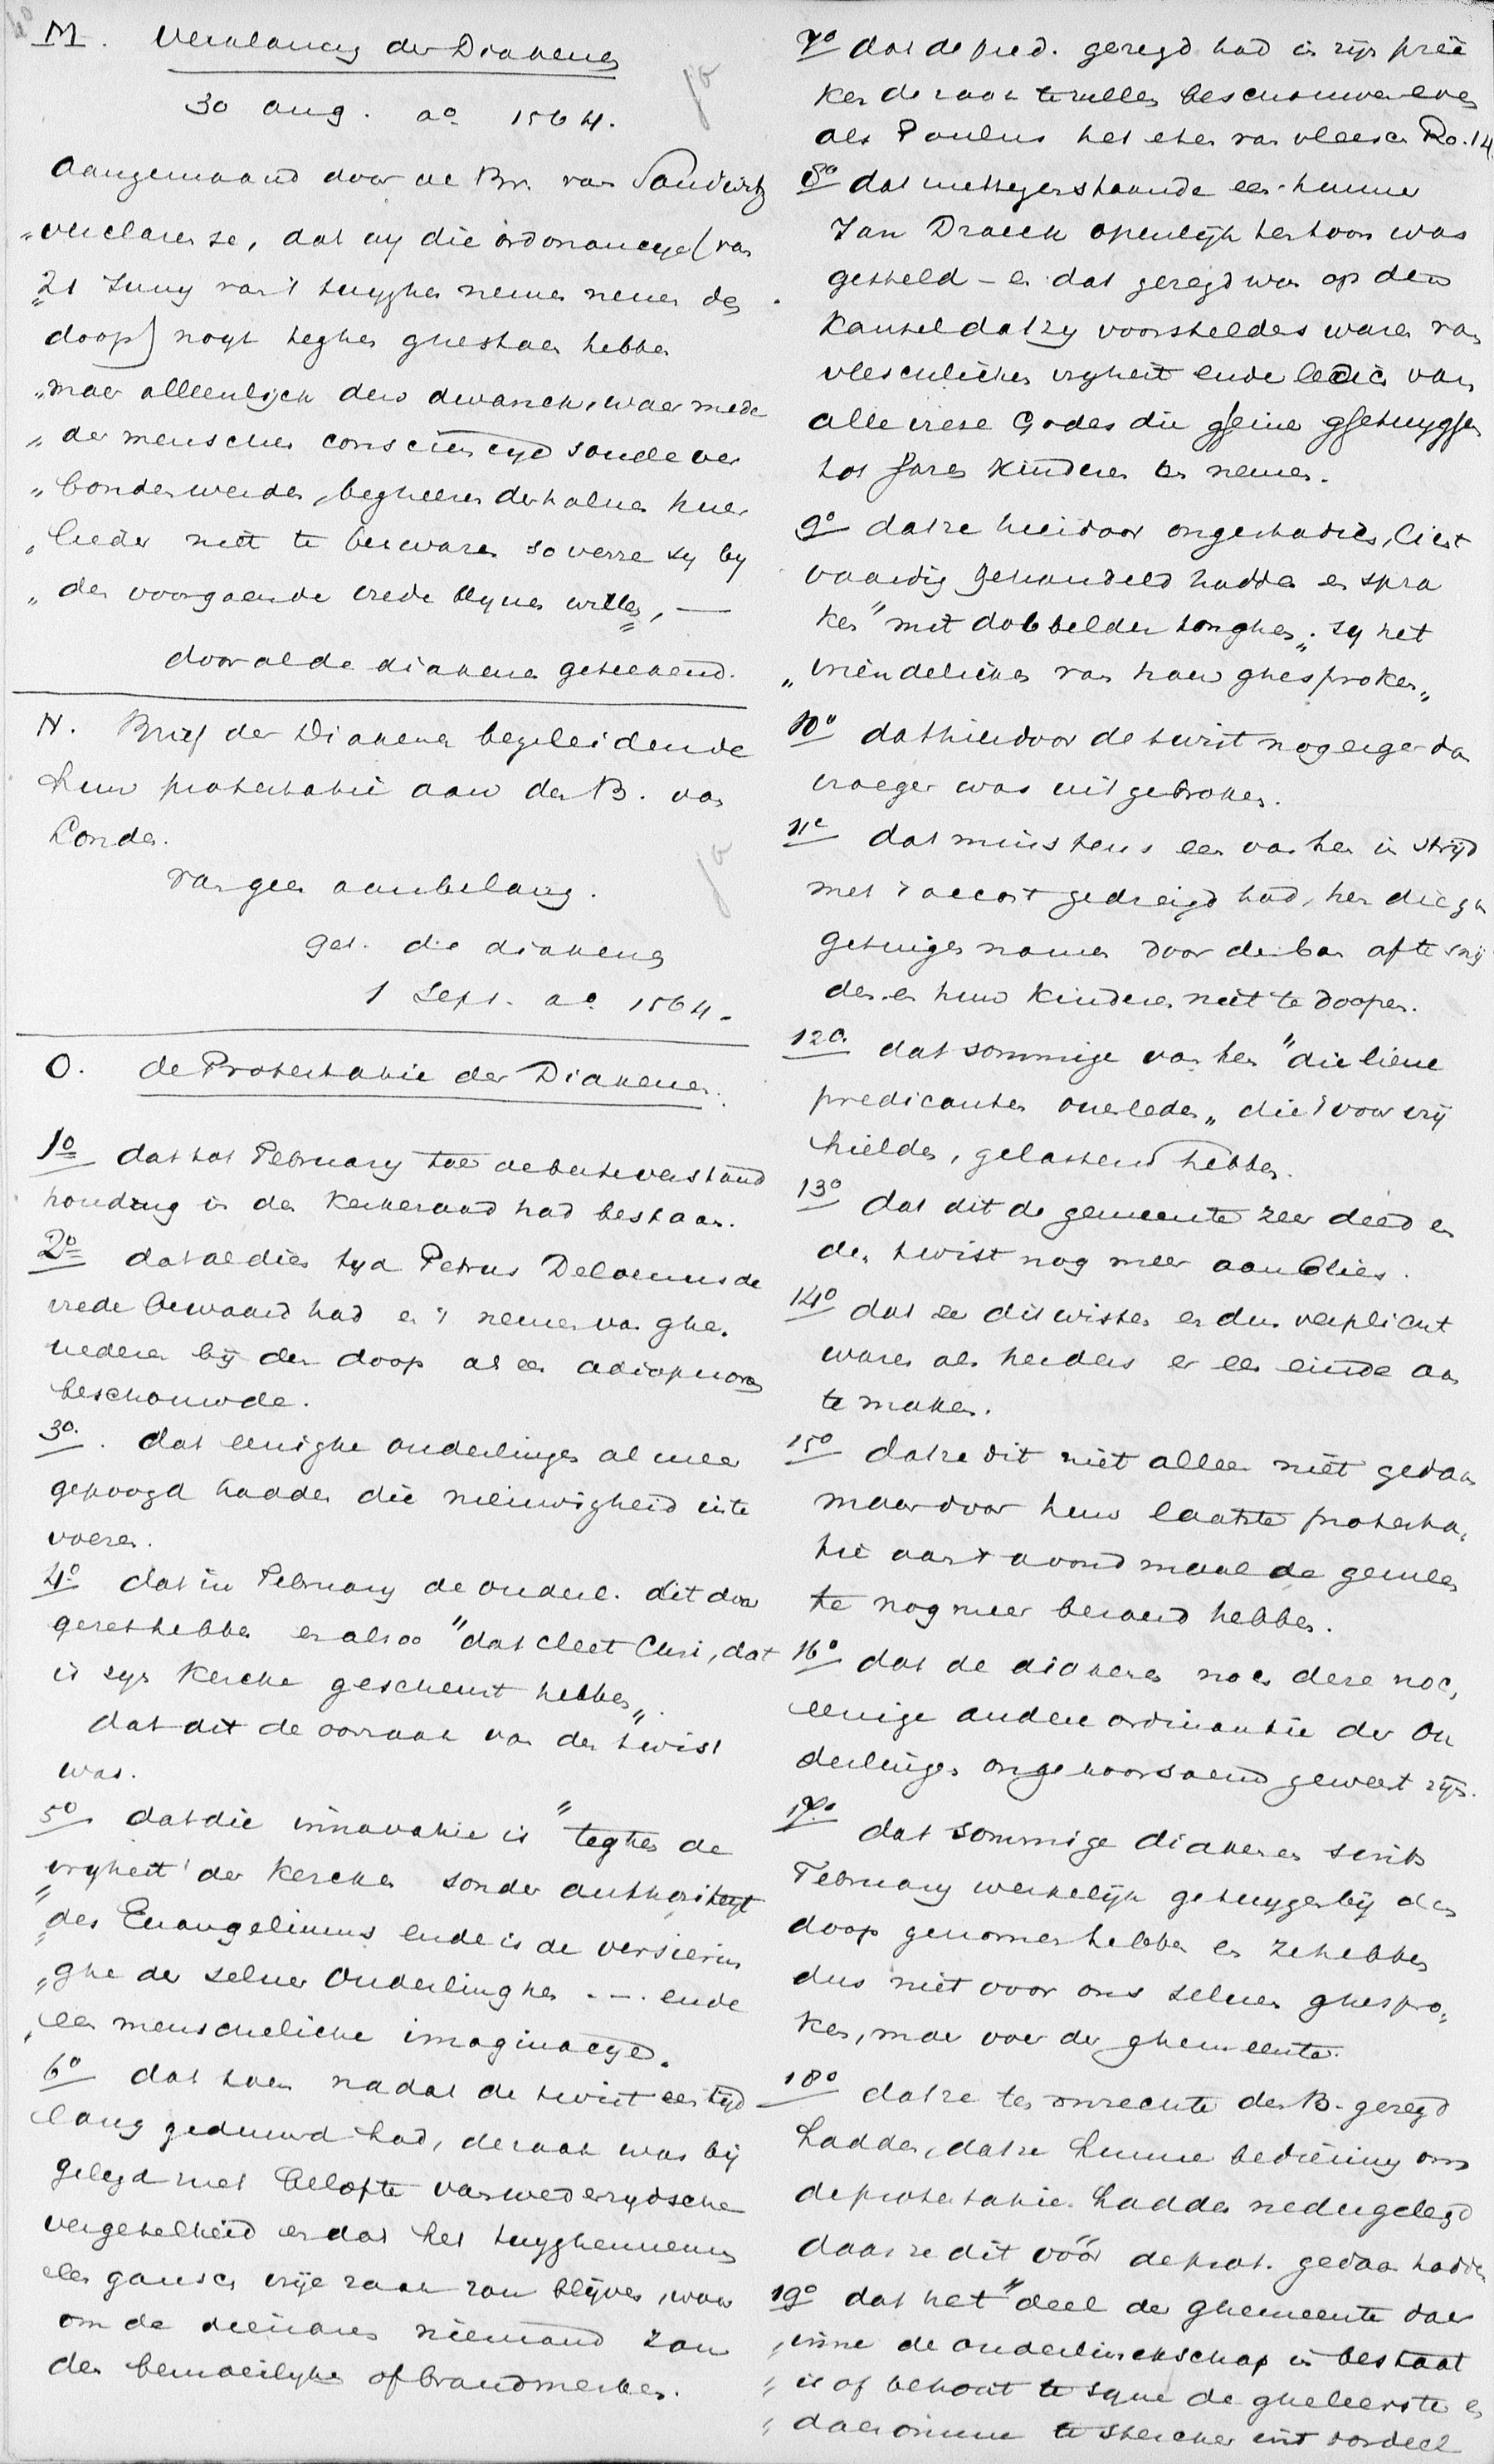 M. Verklaring der Diakenen
30 aug. ao 1564.
ja
Aangemaand door de Br. van Sandwitz
„verclaren se, dat wy die ordonancye (van
„21 Juny van 't tuyghen nemen neuen den
doop) noyt teghen ghestaen hebben
„maer alleenlijck den dwanck, waer mede
„der menschen consciencye soude ver
„bonden werden, begheeren derhaluen huer
„lieden niet te beswaren so verre sy by
„den voorgaende vrede blyuen willen, —
door al de diakenen geteekend.
N. Brief der Diakenen begeleidende
hun protestatie aan den B. van
Londen.
van geen aanbelang.
ja
get. de diakenen
1 Sept. ao 1564.
O. de Protestatie der Diakenen.
1o dat tot February toe de beste verstand
houding in den Kerkeraad had bestaan.
2o dat al dien tyd Petrus Delaenus de
vrede bewaard had en 't nemen van ghe-
uederen bij den doop als een adiaphoron
beschouwde.
3o. dat eenighe ouderlingen al meer
gepoogd hadden die nieuwigheid in te
voeren.
4o dat in February de ouderl. dit door
gezet hebben en alsoo "dat cleet Chri, dat
is syn Kercke gescheurt hebben„.
dat dit de oorzaak van den twist
was.
5o dat die innovatie is "teghen de
vryheit der Kercken sonder authoriteyt
„des Euangeliums ende is de versierin
„ghe der seluer Ouderlinghen . — . ende
„een menscheliche imaginacye.
6o dat toen nadat de twist een tijd
lang geduurd had, de zaak was bij
gelegd met belofte van wederzydsche
vergetelheid en dat het tuyghennemen
een gansch vrije zaak zou blijven, waar
om de dienaren niemand zou
den bemoeilyken of brandmerken.
7o dat de pred. gezegd had in zijn pree
ken de zaak te willen beschouwen even
als Paulus het eten van vleesch Ro. 14.
8o dat niettegenstaande een hunner
Jan Draeck openlijk ten toon was
gesteld – en dat gezegd was op den
Kansel dat zy voorstelders waren van
vleeschelicken vryheit ende ledich van
alle vreze Godes die gheine ghetuyghen
tot hare kinderen en nemen.
9o dat ze hierdoor ongestadich, licht
vaardig gehandeld hadden en spra
ken "met dobbelder tonghen„. sy het
„vriendelicken van hauw ghesproken„
10o dat hierdoor de twist nog erger dan
vroeger was uitgebroken.
11o dat minstens een van hen in strijd
met 't accort gedreigd had, hen die gn
getuigen namen door den ban af te snij
den en hun kinderen niet te doopen.
12o. dat sommige van hen "die lieue
predicanten ouerleden„ die 't voor vrij
hielden, gelasterd hebben.
13o dat dit de gemeente zeer deed en
den twist nog meer aanblies.
14o dat ze dit wisten en dus verplicht
waren als herders er een einde aan
te maken.
15o dat ze dit niet alleen niet gedaan
maar door hun laatste protesta-
tie aan 't avondmaal de gemeen
te nog meer beroerd hebben.
16o dat de diakenen noch deze noch
eenige andere ordinantie der Ou
derlingen ongehoorsaem geweest zijn.
17o dat sommige diakenen sints
February werkelijk getuygen bij den
doop genomen hebben en ze hebben
dus niet voor ons seluen ghespro-
ken, maer voer de ghemeente.
18o dat ze ten onrechte den B. gezegd
hadden, dat ze hunne bediening om
de protestatie hadden nedergelegd
daar ze dit vóór de prot. gedaan hadden
19o dat het "deel der ghemeente daer
„inne de ouderlinckschap in bestaat
„is of behoirt te syne de gheleerste en
„daeromme te stercker int oordeel